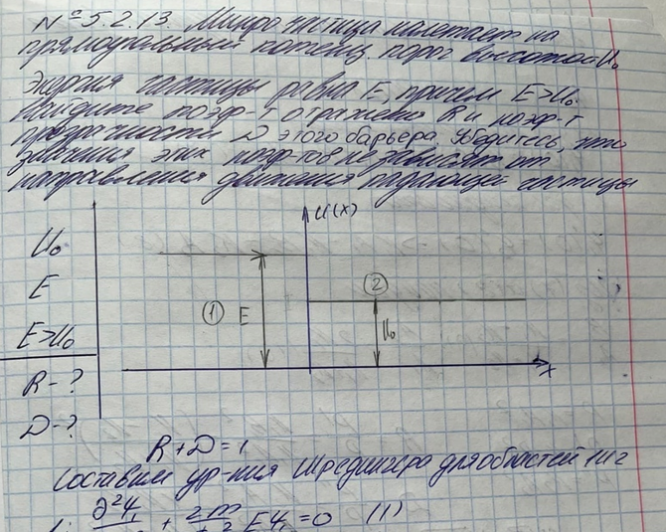 № 5.2.13. Микрочастица налетает на
прямоугольный потенц. порог высотой U₀
Энергия частицы равна E, причём E>U₀.
Найдите коэф-т отражения R и коэф-т
прозрачности D этого барьера. Убедитесь, что
значения этих коэф-тов не зависят от
направления движения падающей частицы
U(x)
U₀
E
E>U₀
R-?
D-?
① E
②
U₀
x
R+D=1
Составим ур-ния Шредингера для областей 1 и 2
∂²Ψ₁ + 2m EΨ₁=0 (1)